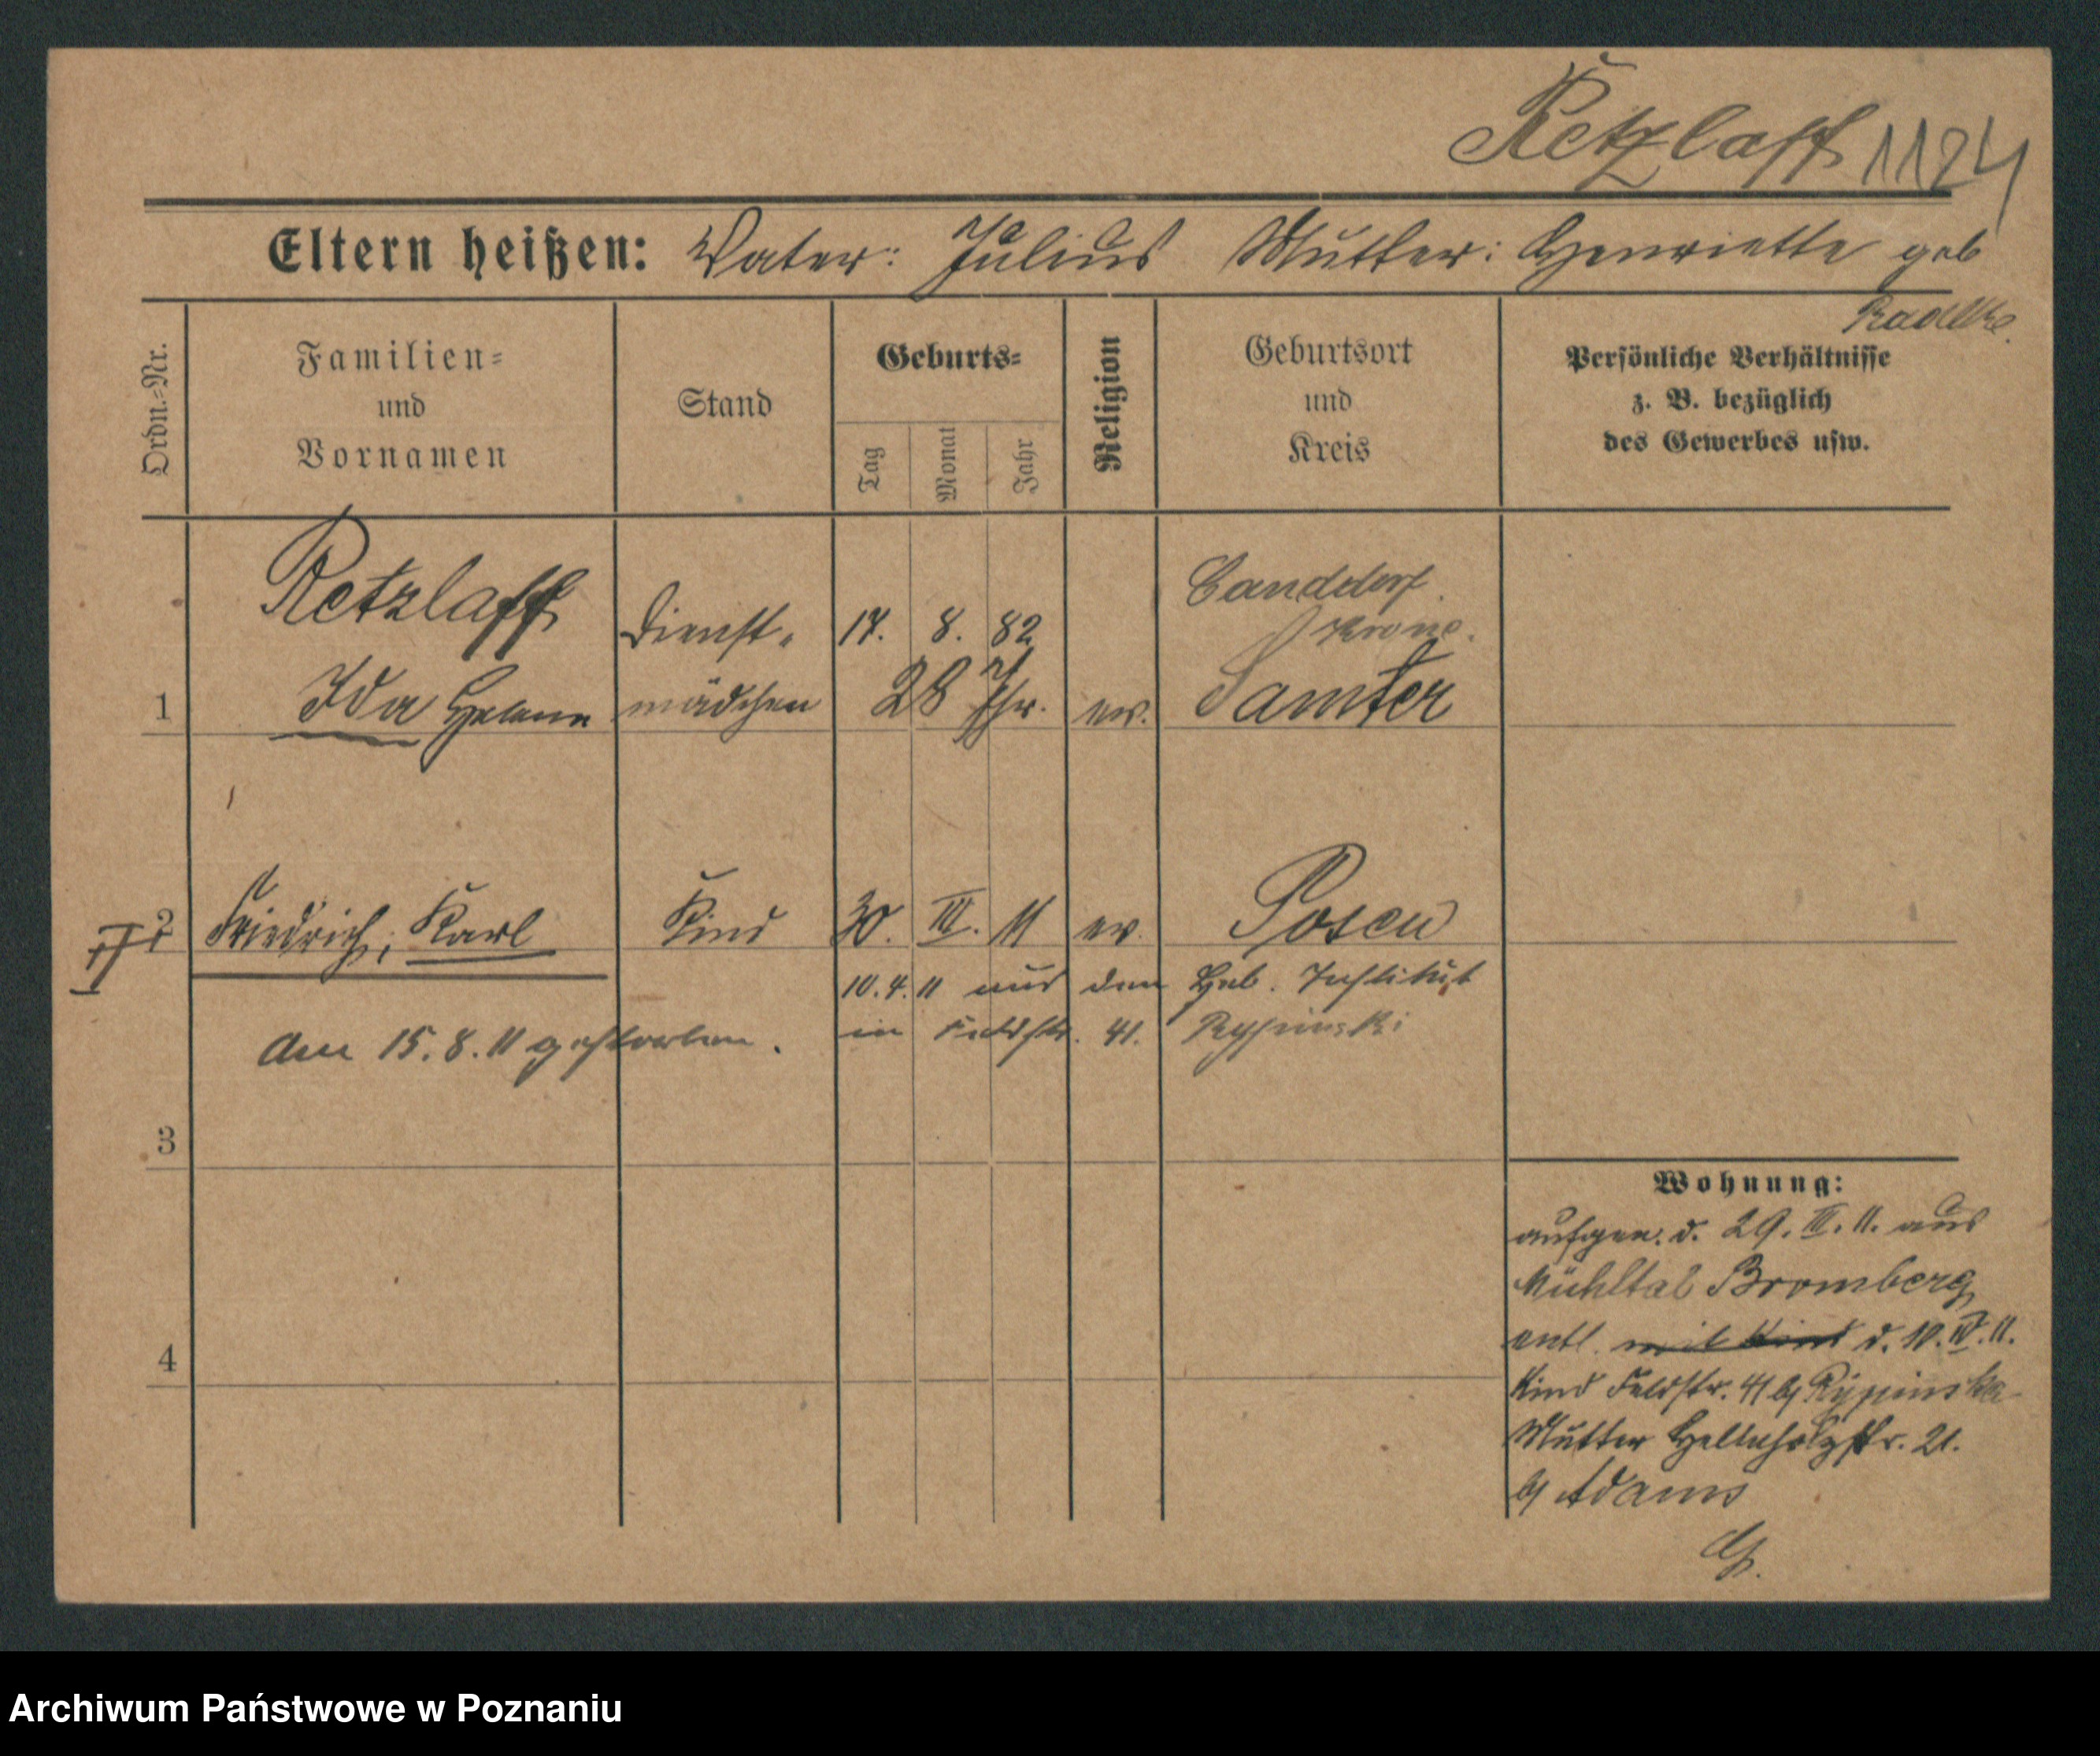 Retzlaff 1124
Eltern heißen: Vater: Julius Mutter: Henriette geb
Radtke.
Ordn.-Nr.
Familien-
und
Vornamen
Stand
Geburts-
Tag
Monat
Jahr
Religion
Geburtsort
und
Kreis
Persönliche Verhältnisse
z. B. bezüglich
des Gewerbes usw.
1
Retzlaff
Ida Helene
Dienst-
mädchen
17. 8. 82
28 Jhr.
ev.
Krone.
Samter
2
Friedrich, Karl
Kind
30. III. 11
ev.
Posen
10.4.11 aus dem Heb. Institut
in Feldstr. 41. Rypinski
Am 15.8.11 gestorben.
3
4
Wohnung:
aufgen. d. 29. III. 11. aus
Mühltal Bromberg
entl. mit Kind d. 10. IV. 11.
Kind Feldstr. 41 b/ Rypinska
Mutter 21.
b/ Adams
Archiwum Państwowe w Poznaniu